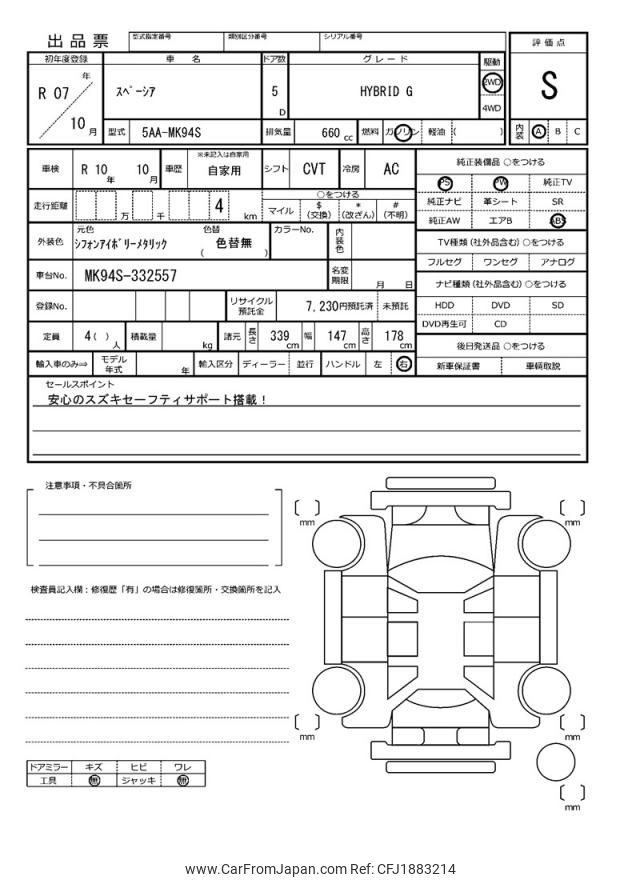 出品票
型式指定番号
類別区分番号
シリアル番号
評価点
S
初年度登録
車名
ドア数
グレード
駆動
R 07
年
10
月
スペーシア
5
D
HYBRID G
2WD
4WD
型式
5AA-MK94S
排気量
660 cc
燃料
ガソリン
軽油
( )
内装
A
B
C
車検
R 10
年
10
月
車歴
※未記入は自家用
自家用
シフト
CVT
冷房
AC
純正装備品 ○をつける
PS
PW
純正TV
純正ナビ
革シート
SR
純正AW
エアB
ABS
走行距離
万
千
4
km
○をつける
マイル
$
(交換)
*
(改ざん)
#
(不明)
TV種類 (社外品含む) ○をつける
フルセグ
ワンセグ
アナログ
外装色
元色
シフォンアイボリーメタリック
色替
( 色替無 )
カラーNo.
内装色
車台No.
MK94S-332557
名変期限
月
日
ナビ種類 (社外品含む) ○をつける
HDD
DVD
SD
DVD再生可
CD
登録No.
リサイクル預託金
7,230円預託済
未預託
定員
4( )
人
積載量
kg
諸元
長さ
339
cm
幅
147
cm
高さ
178
cm
後日発送品 ○をつける
新車保証書
車輌取説
輸入車のみ⇒
モデル年式
年
輸入区分
ディーラー
並行
ハンドル
左
右
セールスポイント
安心のスズキセーフティサポート搭載！
注意事項・不具合箇所
検査員記入欄：修復歴「有」の場合は修復箇所・交換箇所を記入
mm
mm
mm
mm
mm
ドアミラー
キズ
ヒビ
ワレ
工具
無
ジャッキ
無
www.CarFromJapan.com Ref: CFJ1883214